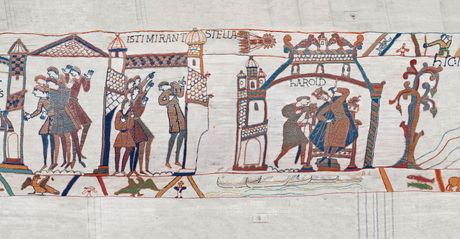 ISTI MIRANT STELLA
hAROLD
hIC